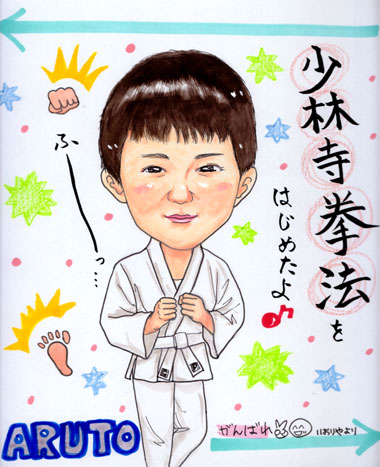 少林寺拳法を
はじめたよ♪
ふーっ…
ARUTO
がんばれ
はりやより